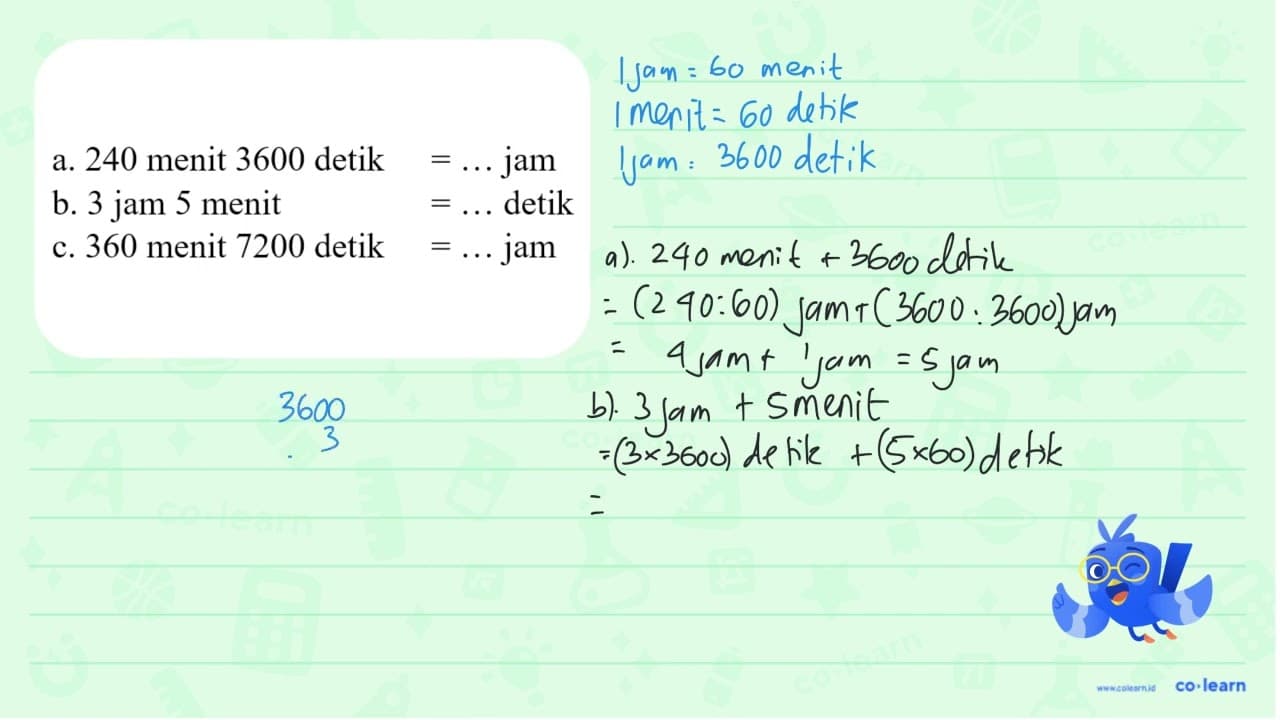 a. 240 menit 3600 detik = ... jam
b. 3 jam 5 menit = ... detik
c. 360 menit 7200 detik = ... jam
1 jam = 60 menit
1 menit = 60 detik
1 jam = 3600 detik
a). 240 menit + 3600 detik
= (240:60) jam + (3600:3600) jam
= 4 jam + 1 jam = 5 jam
3600
3
b). 3 jam + 5 menit
= (3x3600) detik + (5x60) detik
=
www.colearn.id co·learn